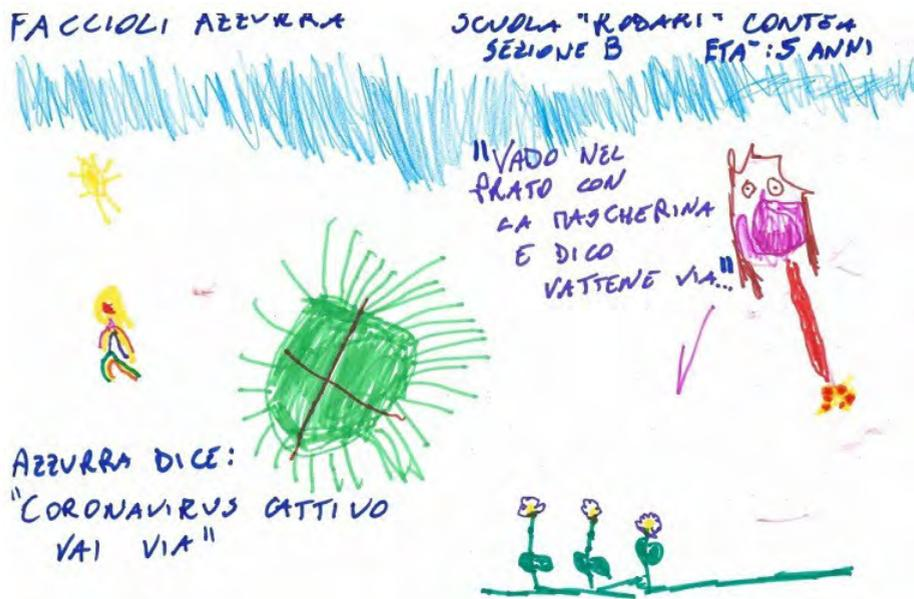 FACCIOLI AZZURRA
SCUOLA "RODARI" CONTEA
SEZIONE B ETA': 5 ANNI
"VADO NEL
PRATO CON
LA MASCHERINA
E DICO
VATTENE VIA..."
AZZURRA DICE:
"CORONAVIRUS CATTIVO
VAI VIA"